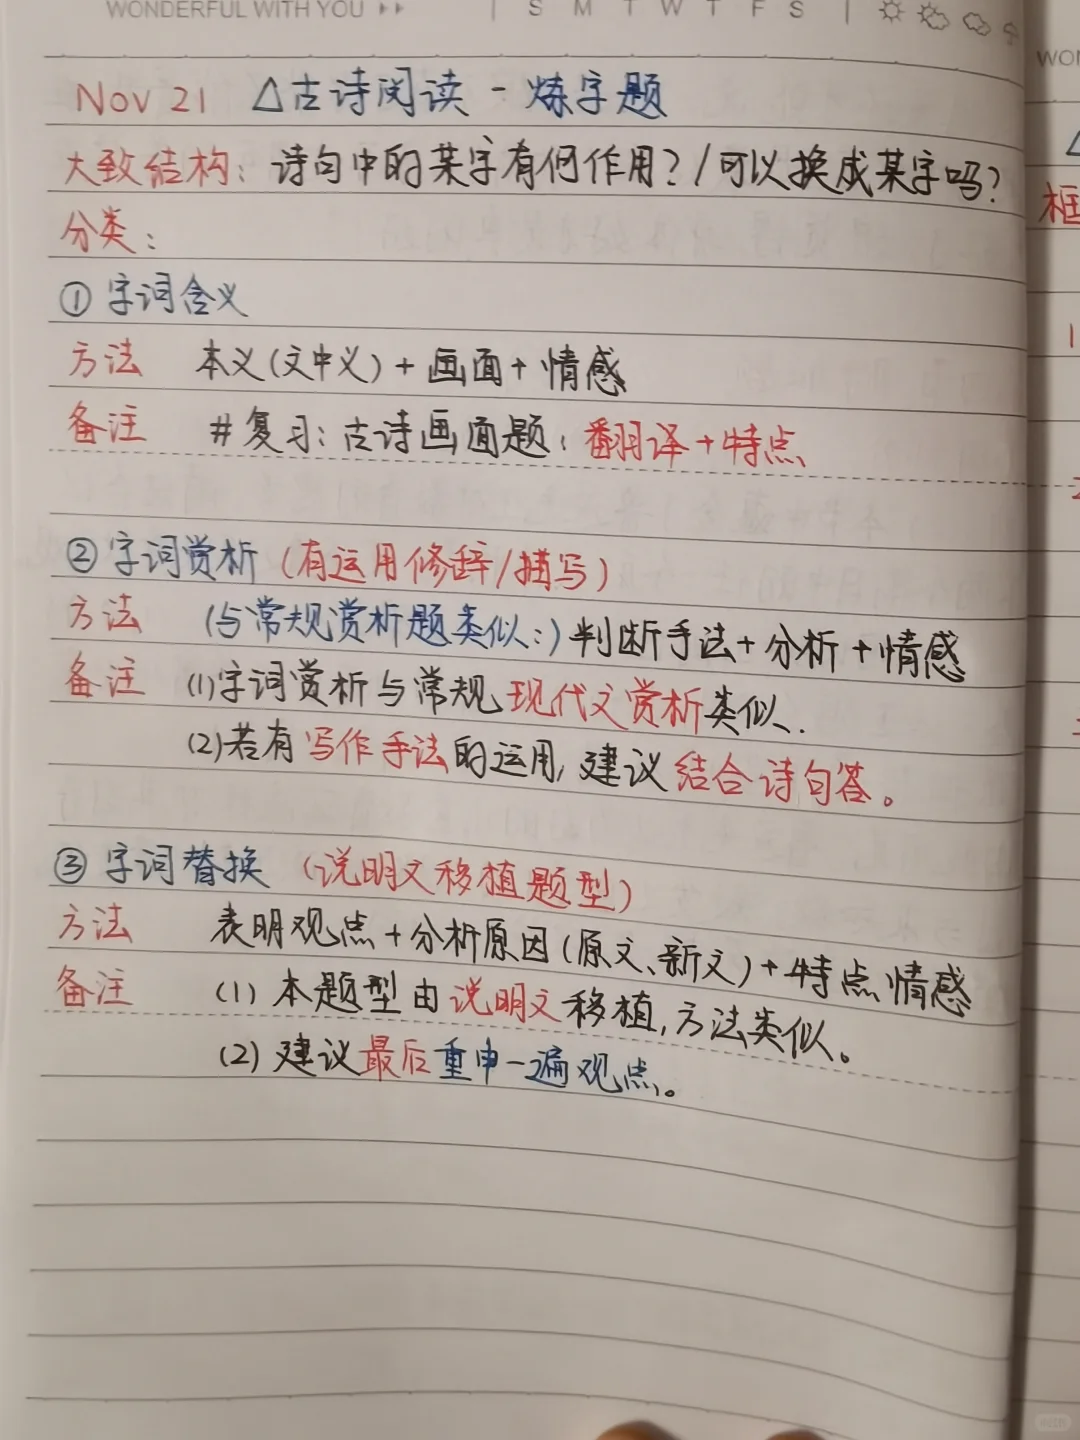 WONDERFUL WITH YOU
S M T W T F S
Nov 21 △古诗阅读 - 炼字题
大致结构：诗句中的某字有何作用？/可以换成某字吗？
分类：
① 字词含义
方法 本义(文中义)+画面+情感
备注 #复习：古诗画面题：翻译+特点
② 字词赏析（有运用修辞/描写）
方法 (与常规赏析题类似:)判断手法+分析+情感
备注 (1)字词赏析与常规现代文赏析类似.
(2)若有写作手法的运用,建议结合诗句答。
③ 字词替换（说明文移植题型）
方法 表明观点+分析原因(原文、新文)+特点情感
备注 (1) 本题型由说明文移植,方法类似。
(2) 建议最后重申一遍观点。
WON
框
1